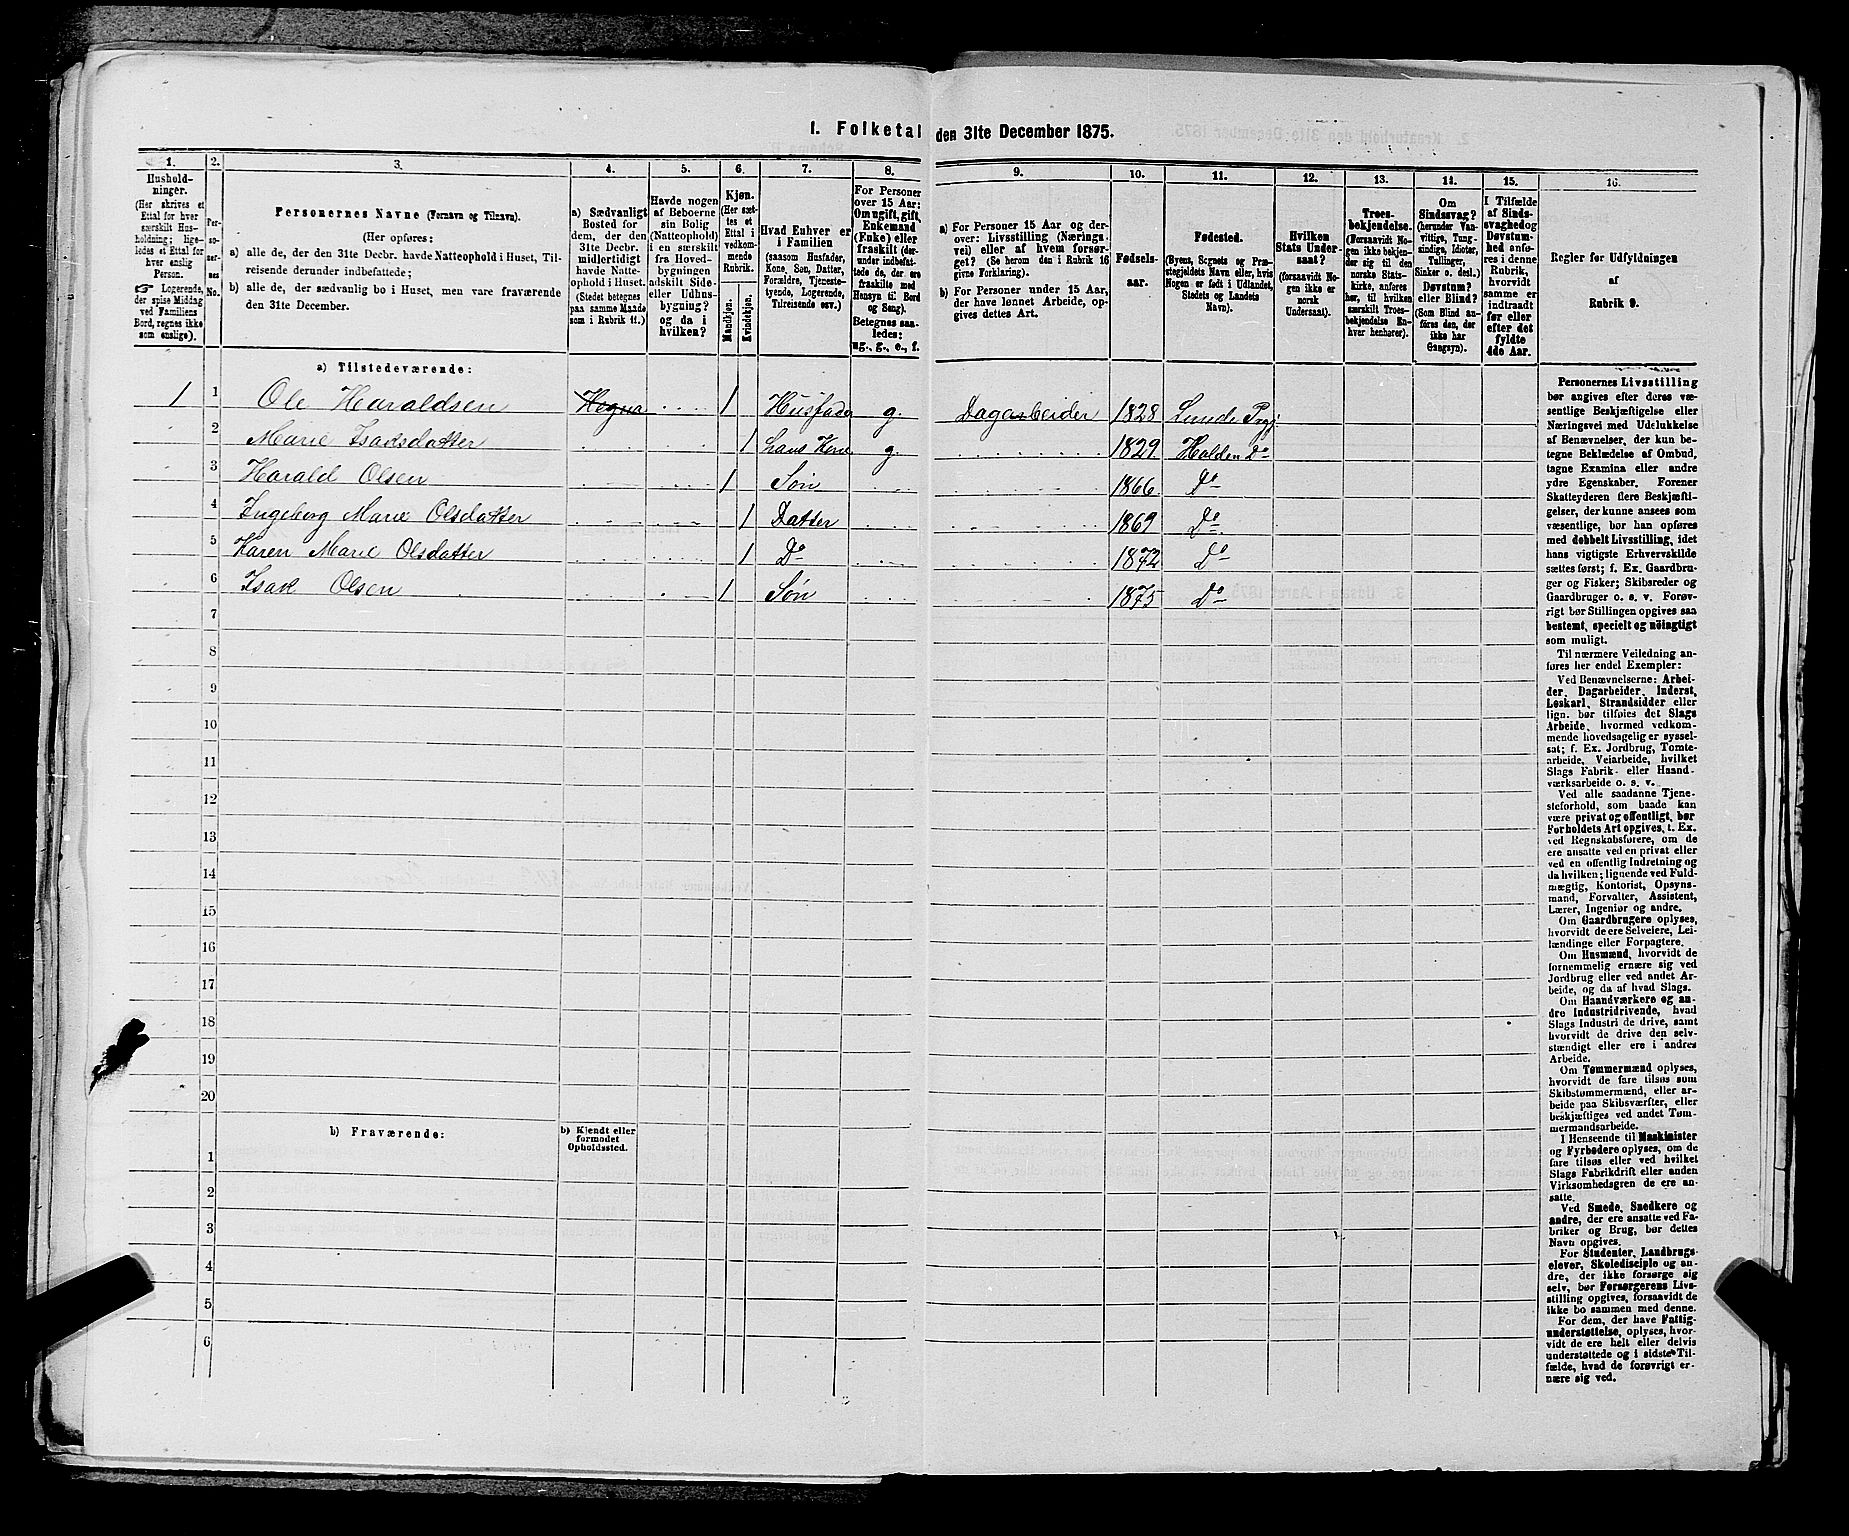 1. Folketal den 31te December 1875.
1. 2. 3. 4. 5. 6. 7. 8. 9. 10. 11. 12. 13. 14. 15. 16.
Hushold-
ninger.
(Her skrives et
Ettal for hver
særskilt Hus-
holdning; lige-
ledes et Ettal for
hver enslig
Person.
☞ Logerende,
der spise Middag
ved Familiens
Bord, regnes ikke
som enslige).
Per-
so-
ner-
nes
No.
Personernes Navne (Fornavn og Tilnavn).
(Her opføres:
a) alle de, der den 31te Decbr. havde Natteophold i Huset, Til-
reisende derunder indbefattede;
b) alle de, der sædvanlig bo i Huset, men vare fraværende
den 31te December.
a) Sædvanligt
Bosted for
dem, der den
31te Decbr.
midlertidigt
havde Natte-
ophold i Huset.
(Stedet betegnes
paa samme Maade
som i Rubrik 11.)
Havde nogen
af Beboerne
sin Bolig
(Natteophold)
i en særskilt
fra Hoved-
bygningen
adskilt Side-
eller Udhus-
bygning?
og da i
hvilken?
Kjøn.
(Her sæt-
tes et
Ettal i
vedkom-
mende
Rubrik.
Mandkjøn.
Kvindekjøn.
Hvad Enhver er
i Familien
(saasom Husfader,
Kone, Søn, Datter,
Forældre, Tjeneste-
tyende, Logerende,
Tilreisende osv.)
For Personer
over 15 Aar:
Om ugift, gift,
Enkemand
(Enke) eller
fraskilt (der-
under indbefat-
tede de, der ere
fraskilte med
Hensyn til Bord
og Seng).
Betegnes saa-
ledes:
ug., g., e., f.
a) For Personer 15 Aar og der-
over: Livsstilling (Nærings-
vei) eller af hvem forsør-
get? (Se herom den i Rubrik 16
givne Forklaring).
b) For Personer under 15 Aar,
der have lønnet Arbeide, op-
gives dettes Art.
Fødsels-
aar.
Fødested.
(Byens, Sognets og Præ-
stegjeldets Navn eller, hvis
Nogen er født i Udlandet,
Stedets og Landets
Navn).
Hvilken
Stats Under-
saat?
(forsaavidt No-
gen ikke er
norsk
Undersaat).
Troes-
bekjendelse.
(Forsaavidt No-
gen ikke bekjen-
der sig til den
norske Stats-
kirke, anføres
her, til hvilken
særskilt Troes-
bekjendelse En-
hver henhører).
Om
Sindssvag?
(herunder Van-
vittige, Tung-
sindige, Idioter,
Tullinger,
Sinker o. desl.)
Døvstum?
eller Blind?
(Som Blind an-
føres den, der
ikke har
Gangsyn).
I Tilfælde
af Sinds-
svaghed og
Døvstum-
hed anfø-
res i denne
Rubrik,
hvorvidt
samme er
indtraadt
før eller
efter det
fyldte
4de Aar.
Regler for Udfyldningen
af
Rubrik 9.
a) Tilstedeværende:
1 1 Ole Haraldsen Hogna 1 Husfader g. Dagarbeider 1828 Lunde Prgj
2 Marie Isaksdatter 1 hans Kone g. 1829 Holden Do
3 Harald Olsen 1 Søn 1866 Do
4 Ingeborg Marie Olsdatter 1 Datter 1869 Do
5 Karen Marie Olsdatter 1 Do 1872 Do
6 Isak Olsen 1 Søn 1875 Do
7
8
9
10
11
12
13
14
15
16
17
18
19
20
b) Fraværende:
b) Kjendt eller
formodet
Opholdssted.
1
2
3
4
5
6
Personernes Livsstilling
bør angives efter deres væ-
sentlige Beskjæftigelse eller
Næringsvei med Udelukkelse
af Benævnelser, der kun be-
tegne Beklædelse af Ombud,
tagne Examina eller andre
ydre Egenskaber. Forener
Skatteyderen flere Beskjæfti-
gelser, der kunne ansees som
væsentlige, bør han opføres
med dobbelt Livsstilling, idet
hans vigtigste Erhvervskilde
sættes først; f. Ex. Gaardbru-
ger og Fisker; Skibsreder og
Gaardbruger o. s. v. Forøv-
rigt bør Stillingen opgives saa
bestemt, specielt og nöiagtigt
som muligt.
Til nærmere Veiledning an-
føres her endel Exempler:
Ved Benævnelserne: Arbei-
der, Dagarbeider, Inderst,
Løskarl, Strandsidder eller
lign. bør tilføies det Slags
Arbeide, hvormed vedkom-
mende hovedsagelig er syssel-
sat; f. Ex. Jordbrug, Tomte-
arbeide, Veiarbeide, hvilket
Slags Fabrik- eller Haand-
værksarbeide o. s. v.
Ved alle saadanne Tjene-
steforhold, som baade kan
være privat og offentligt, bør
Forholdets Art opgives, t. Ex.
ved Regnskabsførere, om de
ere ansatte ved en privat eller
ved en offentlig Indretning og
da hvilken; lignende ved Fuld-
mægtig, Kontorist, Opsyns-
mand, Forvalter, Assistent,
Lærer, Ingeniør og andre.
Om Gaardbrugere oplyses,
hvorvidt de ere Selveiere, Lei-
lændinge eller Forpagtere.
Om Husmænd, hvorvidt de
fornemmelig ernære sig ved
Jordbrug eller ved andet Ar-
beide, og da af hvad Slags.
Om Haandværkere og an-
dre Industridrivende, hvad
Slags Industri de drive, samt
hvorvidt de drive den selv-
stændigt eller ere i andres
Arbeide.
Om Tømmermænd oplyses,
hvorvidt de fare tilsøs som
Skibstømmermænd, eller ar-
beide paa Skibsværfter, eller
beskjæftiges ved andet Tøm-
mermandsarbeide.
I Henseende til Maskinister
og Fyrbødere oplyses, om de
fare tilsøs eller ved hvilket
Slags Fabrikdrift eller anden
Virksomhedsgren de ere an-
satte.
Ved Smede, Snedkere og
andre, der ere ansatte ved Fa-
briker og Brug, bør dettes
Navn opgives.
For Studenter, Landbrugs-
elever, Skoledisciple og an-
dre, der ikke forsørge sig
selv, bør Forsørgerens Livs-
stilling opgives, forsaavidt de
ikke bo sammen med denne.
For dem, der have Fattig-
understøttelse, oplyses, hvor-
vidt de ere helt eller delvis
understøttede og i sidste Til-
fælde, hvad de forøvrigt er-
nære sig ved.